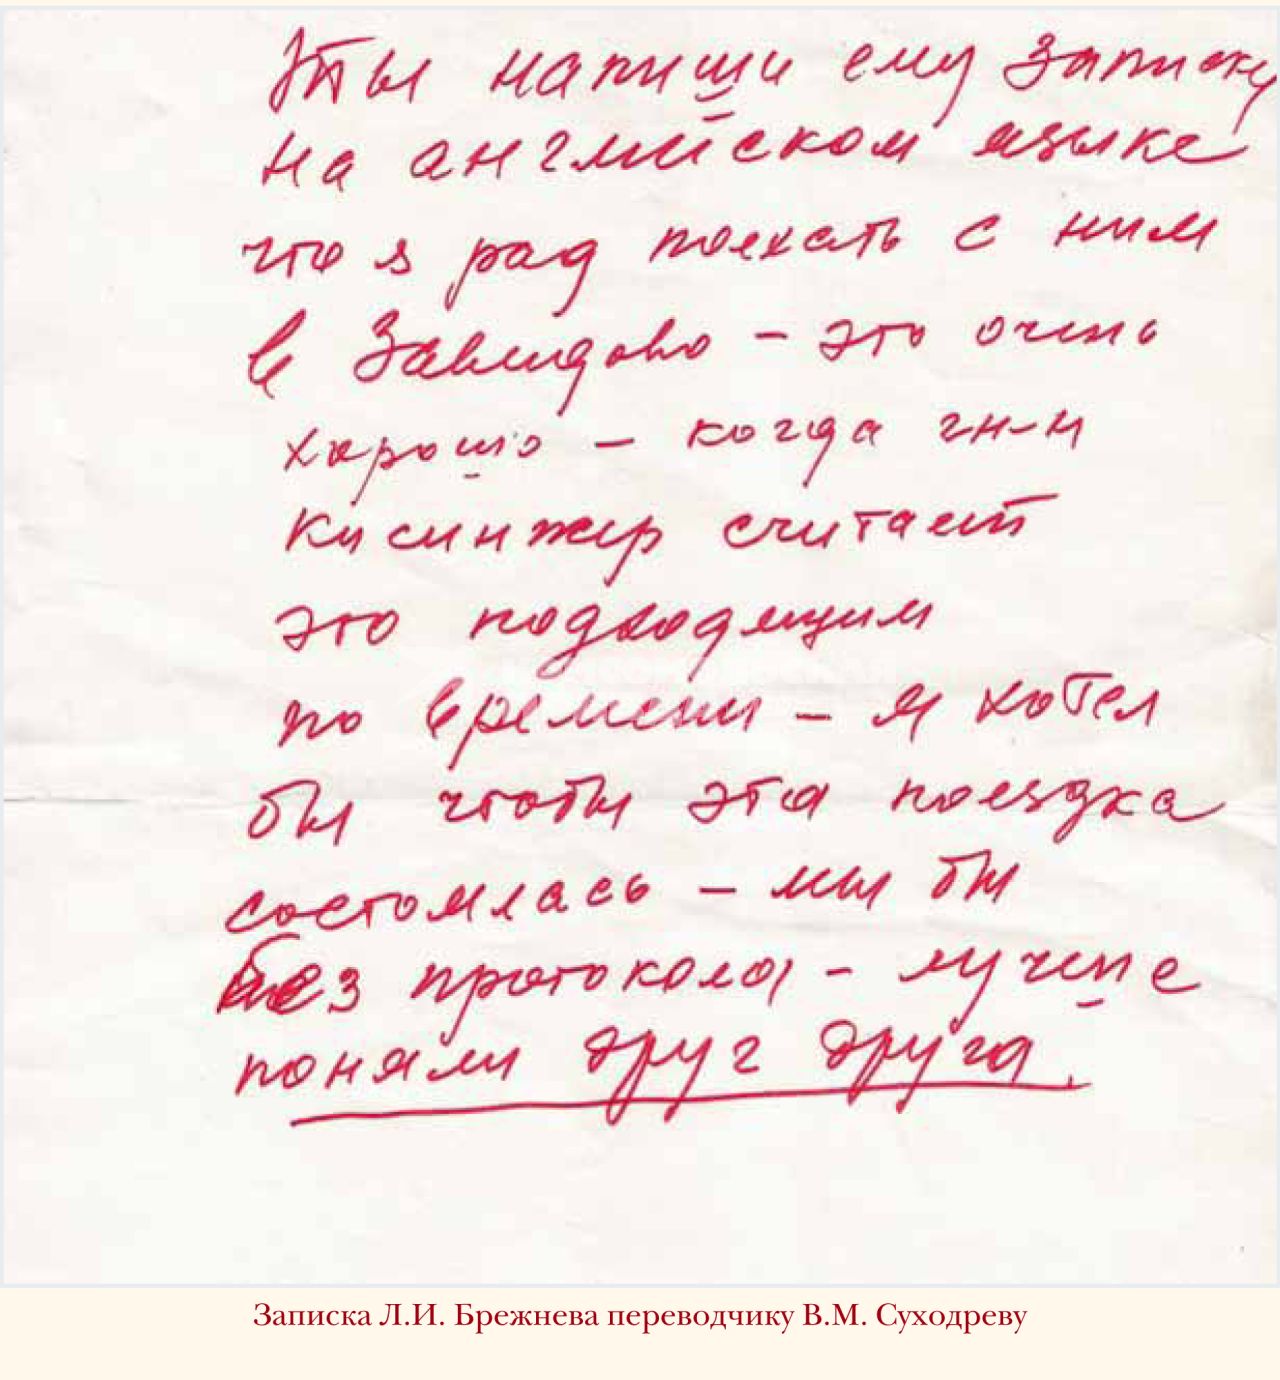 Ты напиши ему записку
на английском языке
что я рад поехать с ним
в Завидово – это очень
хорошо – когда гн-н
Кисинжер считает
это подходящим
по времени – я хотел
бы чтобы эта поездка
состоялась – мы бы
без протокола – лучше
поняли друг друга.
Записка Л.И. Брежнева переводчику В.М. Суходреву